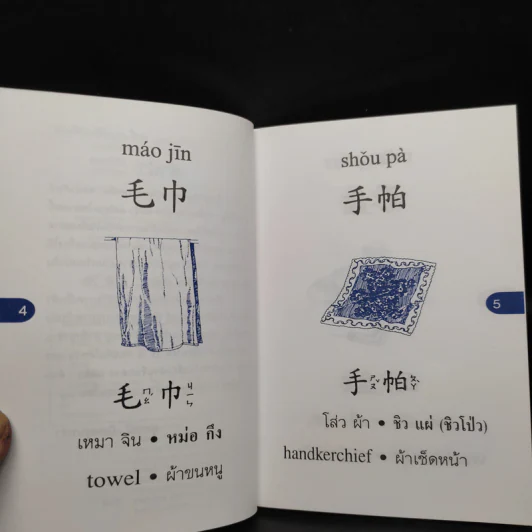 máo jīn
毛巾
4
毛ㄇㄠˊ巾ㄐㄧㄣ
เหมา จิน • หม่อ กึง
towel • ผ้าขนหนู
shǒu pà
手帕
5
手ㄕㄡˇ帕ㄆㄚˋ
โส่ว ผ้า • ชิว แผ่ (ชิวโป๋ว)
handkerchief • ผ้าเช็ดหน้า